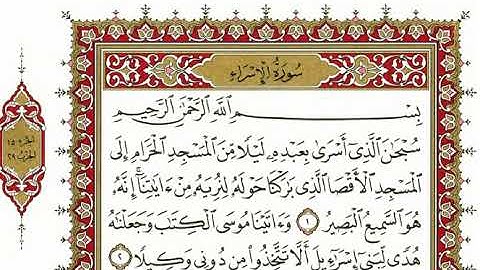 الجزء ١٥
الحزب ٢٩
سُورَةُ الإِسْرَاءِ
بِسْمِ اللَّهِ الرَّحْمَٰنِ الرَّحِيمِ
سُبْحَٰنَ الَّذِىٓ أَسْرَىٰ بِعَبْدِهِۦ لَيْلًا مِّنَ الْمَسْجِدِ الْحَرَامِ إِلَى
الْمَسْجِدِ الْأَقْصَا الَّذِى بَٰرَكْنَا حَوْلَهُۥ لِنُرِيَهُۥ مِنْ ءَايَٰتِنَآ ۚ إِنَّهُۥ
هُوَ السَّمِيعُ الْبَصِيرُ ١ وَءَاتَيْنَا مُوسَى الْكِتَٰبَ وَجَعَلْنَٰهُ
هُدًى لِّبَنِىٓ إِسْرَٰٓءِيلَ أَلَّا تَتَّخِذُوا۟ مِن دُونِى وَكِيلًا ٢